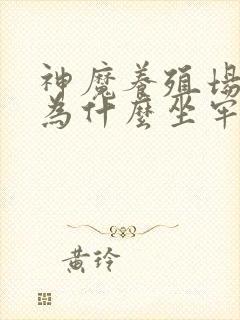 神魔養殖場
為什麼坐牢
黃玲